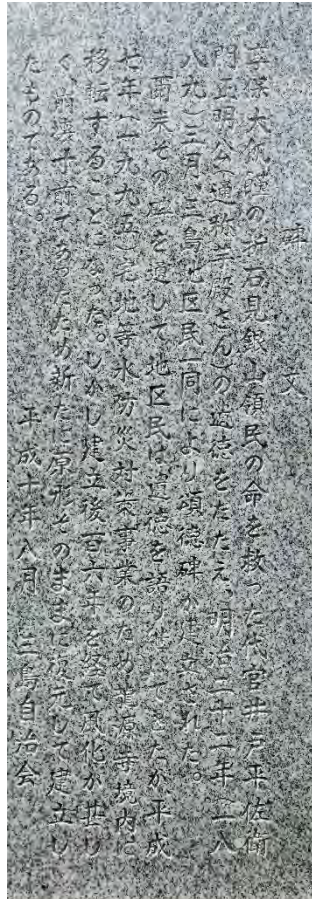 碑文
享保大飢饉の折石見銀山領民の命を救った代官井戸平佐衛
門正明公(通称芋殿さん)の遺徳をたたえ、明治二十二年(一八
八九)三月、三島地区民一同により頌徳碑が建立された。
爾来その碑を通して地区民は遺徳を語り伝えてきたが平成
七年(一九九五)宅地等水防災対策事業のため龍源寺境内に
移転することになった。しかし建立後百六年を経て風化が甚し
く、崩壊寸前であったため新たに原形そのままに復元して建立し
たものである。
平成十年八月 三島自治会